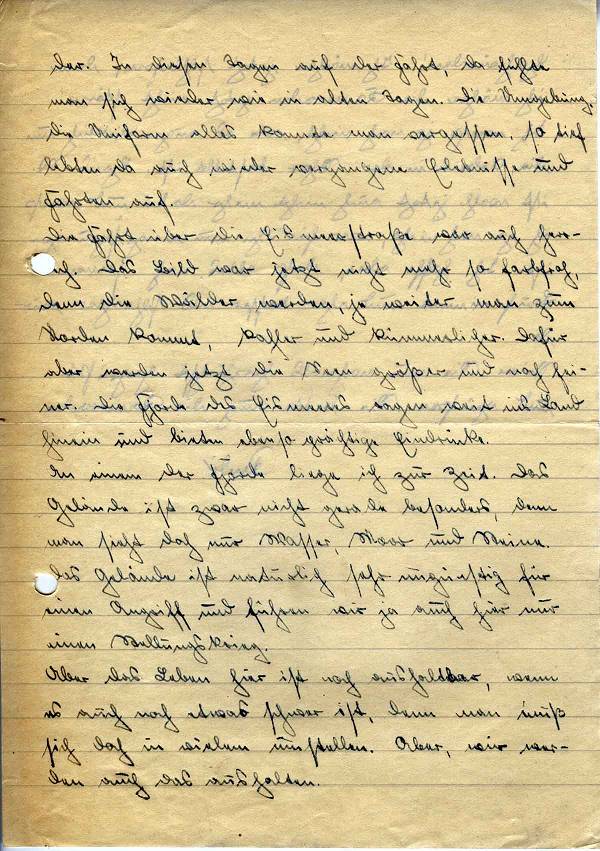 der. In diesen Tagen auf der Fahrt, da fühlte
man sich wieder wie in alten Tagen. Die Umgebung,
die Uniform alles konnte man vergessen, so tief
lebten da auch wieder vergangene Erlebnisse und
Fahrten auf.
Die Fahrt über die Eismeerstraße war auch herr-
lich. Das Bild war jetzt nicht mehr so farbfroh,
denn die Wälder werden, je weiter man zum
Norden kommt, kahler und kümmerlicher. Dafür
aber werden jetzt die Seen größer und noch fei-
ner. Die Fjorde des Eismeeres ragen weit ins Land
hinein und bieten ebenso prächtige Eindrücke.
An einem der Fjorde liege ich zur Zeit. Das
Gelände ist zwar nicht gerade besonders, denn
man sieht doch nur Wasser, Moor und Steine.
Das Gelände ist natürlich sehr ungünstig für
einen Angriff und führen wir ja auch hier nur
einen Stellungskrieg.
Aber das Leben hier ist noch aushaltbar, wenn
es auch noch etwas schwer ist, denn man muß
sich doch in vielem umstellen. Aber, wir wer-
den auch das aushalten.